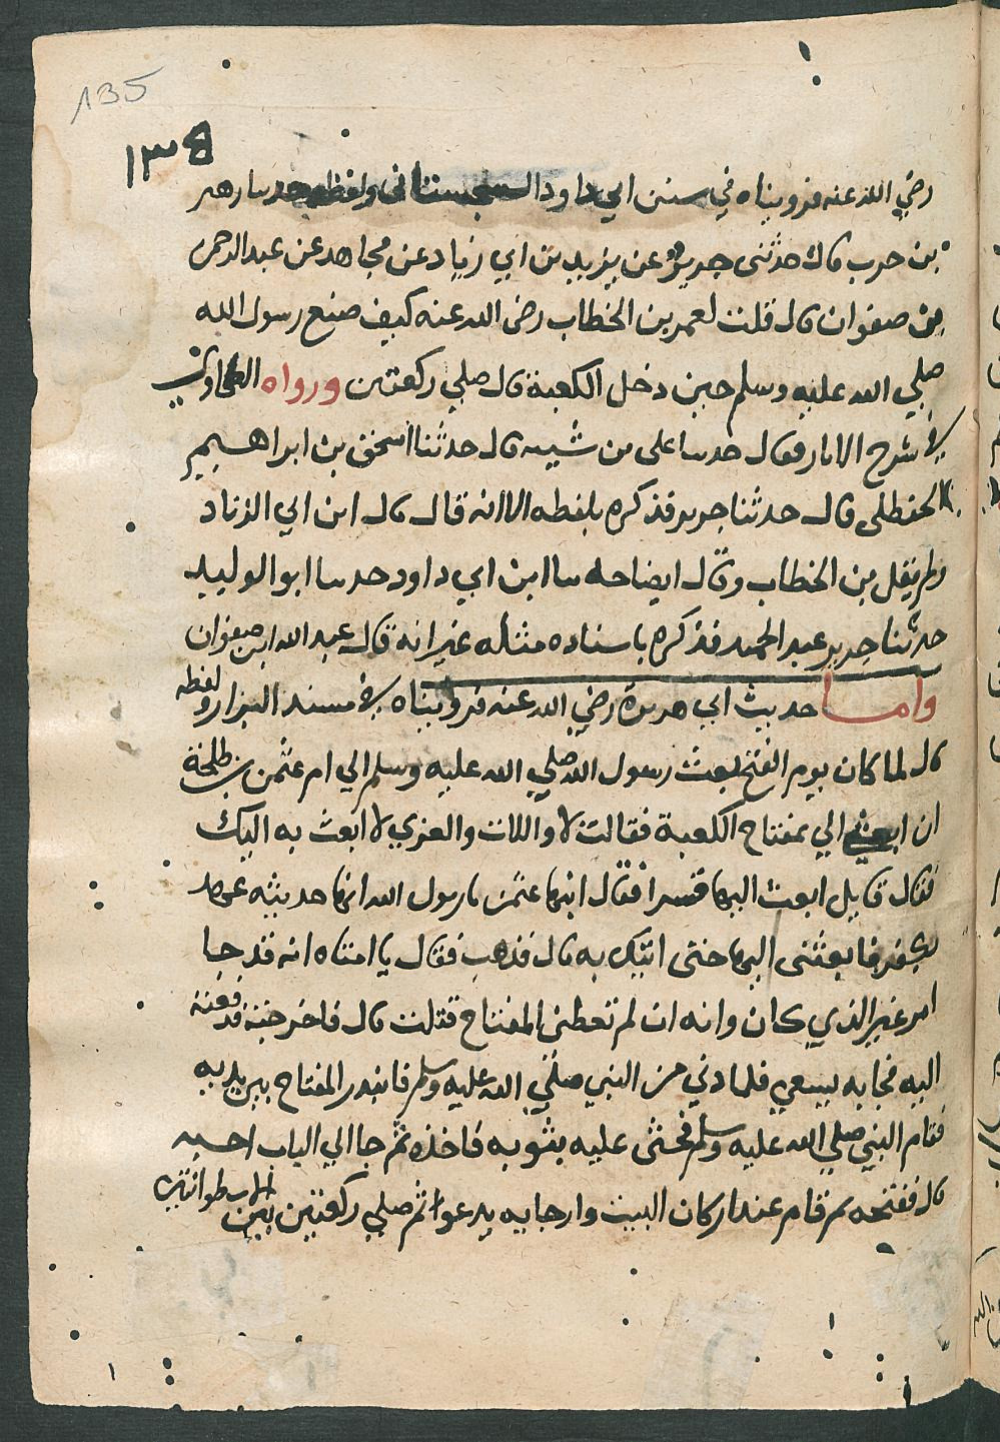 135
١٣٤
رضي الله عنه فرويناه في سنن ابي داود السجستانى ولفظه حدسا زهير
بن حرب قال حدثنى جرير عن يزيد بن ابي زياد عن مجاهد عن عبدالرحمن
بن صفوان قال قلت لعمر بن الخطاب رضى الله عنه كيف صنع رسول الله
صلي الله عليه وسلم حين دخل الكعبة قال صلي ركعتين ورواه الطحاوي
في شرح الاثار فقال حدسا على بن شيبه قال حدثنا اسحق بن ابراهيم
الحنظلى قال حدثنا جرير فذكره بلفظه الا انه قال قال ابن ابي الزناد
ولم يقل بن الخطاب وقال ايضا حدسا ابن ابي داود حدسا ابو الوليد
حدثنا جرير عبد الحميد فذكره باسناده مثله غير انه قال عبد الله ابن صفوان
واما حديث ابي هريرة رضي الله عنه فرويناه في مسند البزار ولفظه
قال لما كان يوم الفتح بعث رسول الله صلي الله عليه وسلم الي ام عثمن بن طلحة
ان ابعثي الي بمفتاح الكعبة فقالت لا واللات والعزي لا ابعث به اليك
فقال قايل ابعث اليها قسرا فقال ابنها عثمن يا رسول الله انها حديثه عهد
بكفر فابعثنى اليها حتى اتيك به قال فذهب فقال يا امتاه انه قد جا
امر غير الذي كان وانه ان لم تعطنى المفتاح قتلت قال فاخرجته فدفعته
اليه فجا به يسعي فلما دني من النبي صلي الله عليه وسلم فابتدر المفتاح بين يديه
فقام النبي صلي الله عليه وسلم فحثى عليه بثوبه فاخذه ثم جا الي الباب احسبه
قال ففتحه ثم قام عند اركان البيت وارجايه يدعوا ثم صلي ركعتين بين